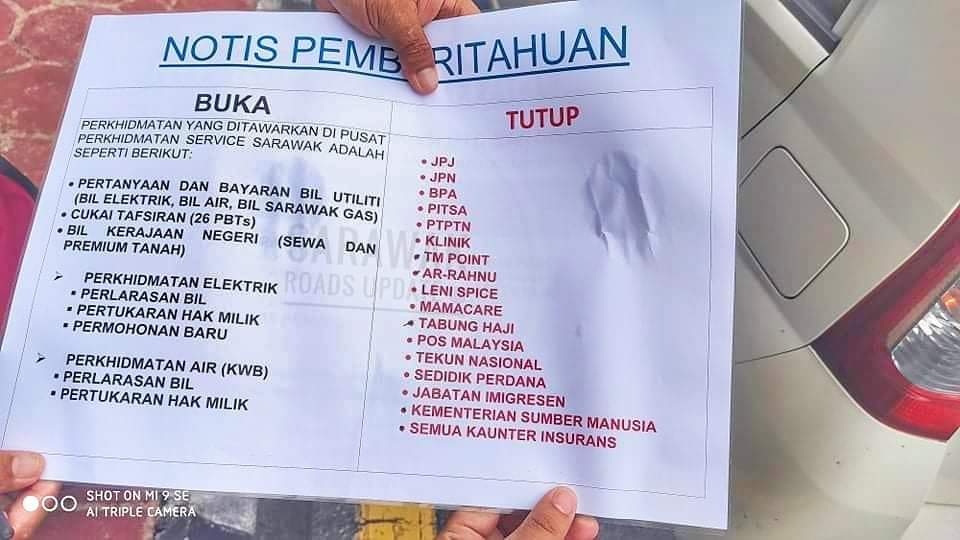 NOTIS PEMBERITAHUAN
BUKA
PERKHIDMATAN YANG DITAWARKAN DI PUSAT
PERKHIDMATAN SERVICE SARAWAK ADALAH
SEPERTI BERIKUT:
• PERTANYAAN DAN BAYARAN BIL UTILITI
(BIL ELEKTRIK, BIL AIR, BIL SARAWAK GAS)
• CUKAI TAFSIRAN (26 PBTs)
• BIL KERAJAAN NEGERI (SEWA DAN
PREMIUM TANAH)
➢ PERKHIDMATAN ELEKTRIK
▪ PERLARASAN BIL
▪ PERTUKARAN HAK MILIK
▪ PERMOHONAN BARU
➢ PERKHIDMATAN AIR (KWB)
▪ PERLARASAN BIL
▪ PERTUKARAN HAK MILIK
TUTUP
• JPJ
• JPN
• BPA
• PITSA
• PTPTN
• KLINIK
• TM POINT
• AR-RAHNU
• LENI SPICE
• MAMACARE
• TABUNG HAJI
• POS MALAYSIA
• TEKUN NASIONAL
• SEDIDIK PERDANA
• JABATAN IMIGRESEN
• KEMENTERIAN SUMBER MANUSIA
• SEMUA KAUNTER INSURANS
SARAWAK
ROADS UPDATE
SHOT ON MI 9 SE
AI TRIPLE CAMERA